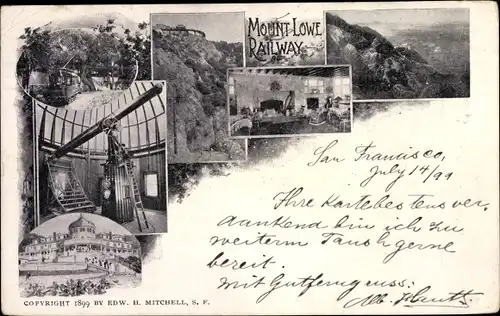 MOUNT LOWE
RAILWAY
San Francisco,
July 14/99
Ihre Karte bestens ver,
dankend bin ich zu
weiterm Tausch gerne
bereit.
mit Gut
COPYRIGHT 1899 BY EDW. H. MITCHELL, S. F.